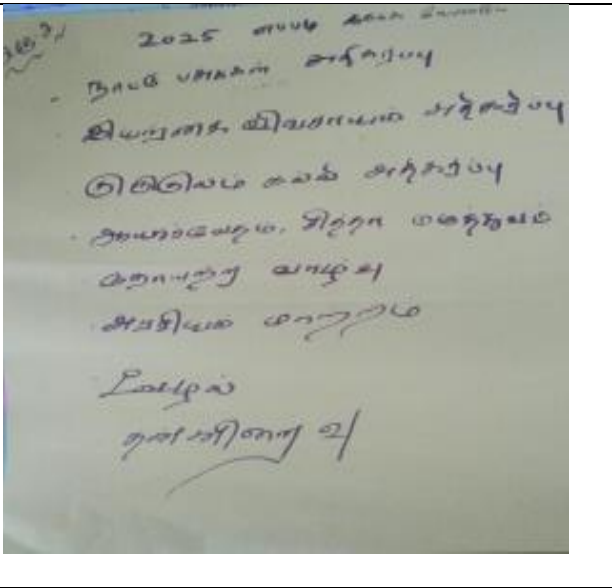 2025 எப்படி
நாட்டு பசுக்கள் அதிகரிப்பு
இயற்கை விவசாயம் அதிகரிப்பு
குருகுலம் கல்வி அதிகரிப்பு
ஆயுர்வேதம், சித்தா மருத்துவம்
நோயற்ற வாழ்வு
அரசியல் மாற்றம்
ஊழல்
தன்னிறைவு